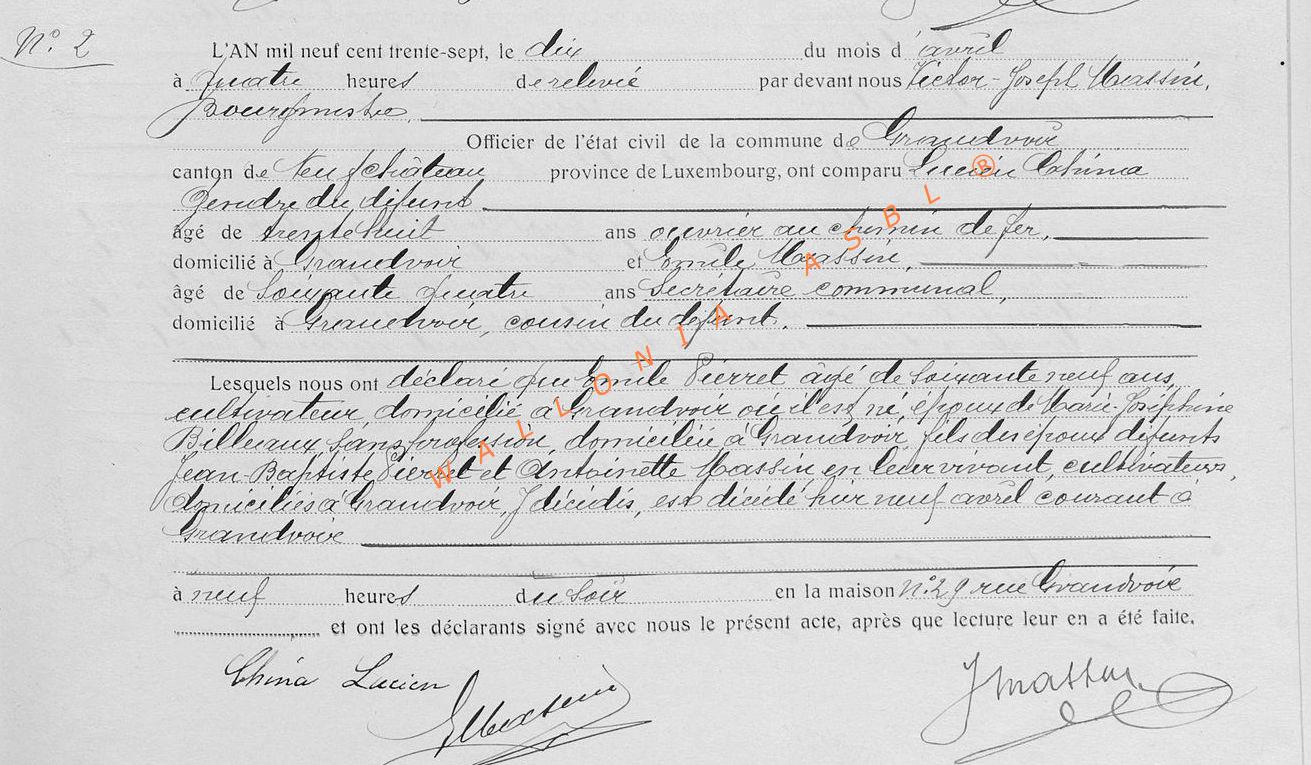 N° 2
L'AN mil neuf cent trente-sept, le dix du mois d' avril
à quatre heures de relevée par devant nous Victor-Joseph Massin,
Bourgmestre,
Officier de l'état civil de la commune de Grandvoir
canton de Neufchâteau province de Luxembourg, ont comparu Lucien China
Gendre du défunt
âgé de trente huit ans ouvrier au chemin de fer,
domicilié à Grandvoir et Emile Massin,
âgé de Soixante quatre ans Secrétaire communal,
domicilié à Grandvoir, cousin du défunt.
Lesquels nous ont déclaré que Emile Pierret âgé de Soixante neuf ans,
cultivateur, domicilié à Grandvoir où il est né, époux de Marie-Joséphine
Billeaux sans profession, domiciliée à Grandvoir, fils des époux défunts
Jean-Baptiste Pierret et Antoinette Massin en leur vivant, cultivateurs,
domiciliés à Grandvoir, y décédés, est décédé hier neuf avril courant à
Grandvoir
à neuf heures du soir en la maison N° 29 rue Grandvoir
et ont les déclarants signé avec nous le présent acte, après que lecture leur en a été faite.
China Lucien
EMassin
JMassin
WALLONIA ASBL ®